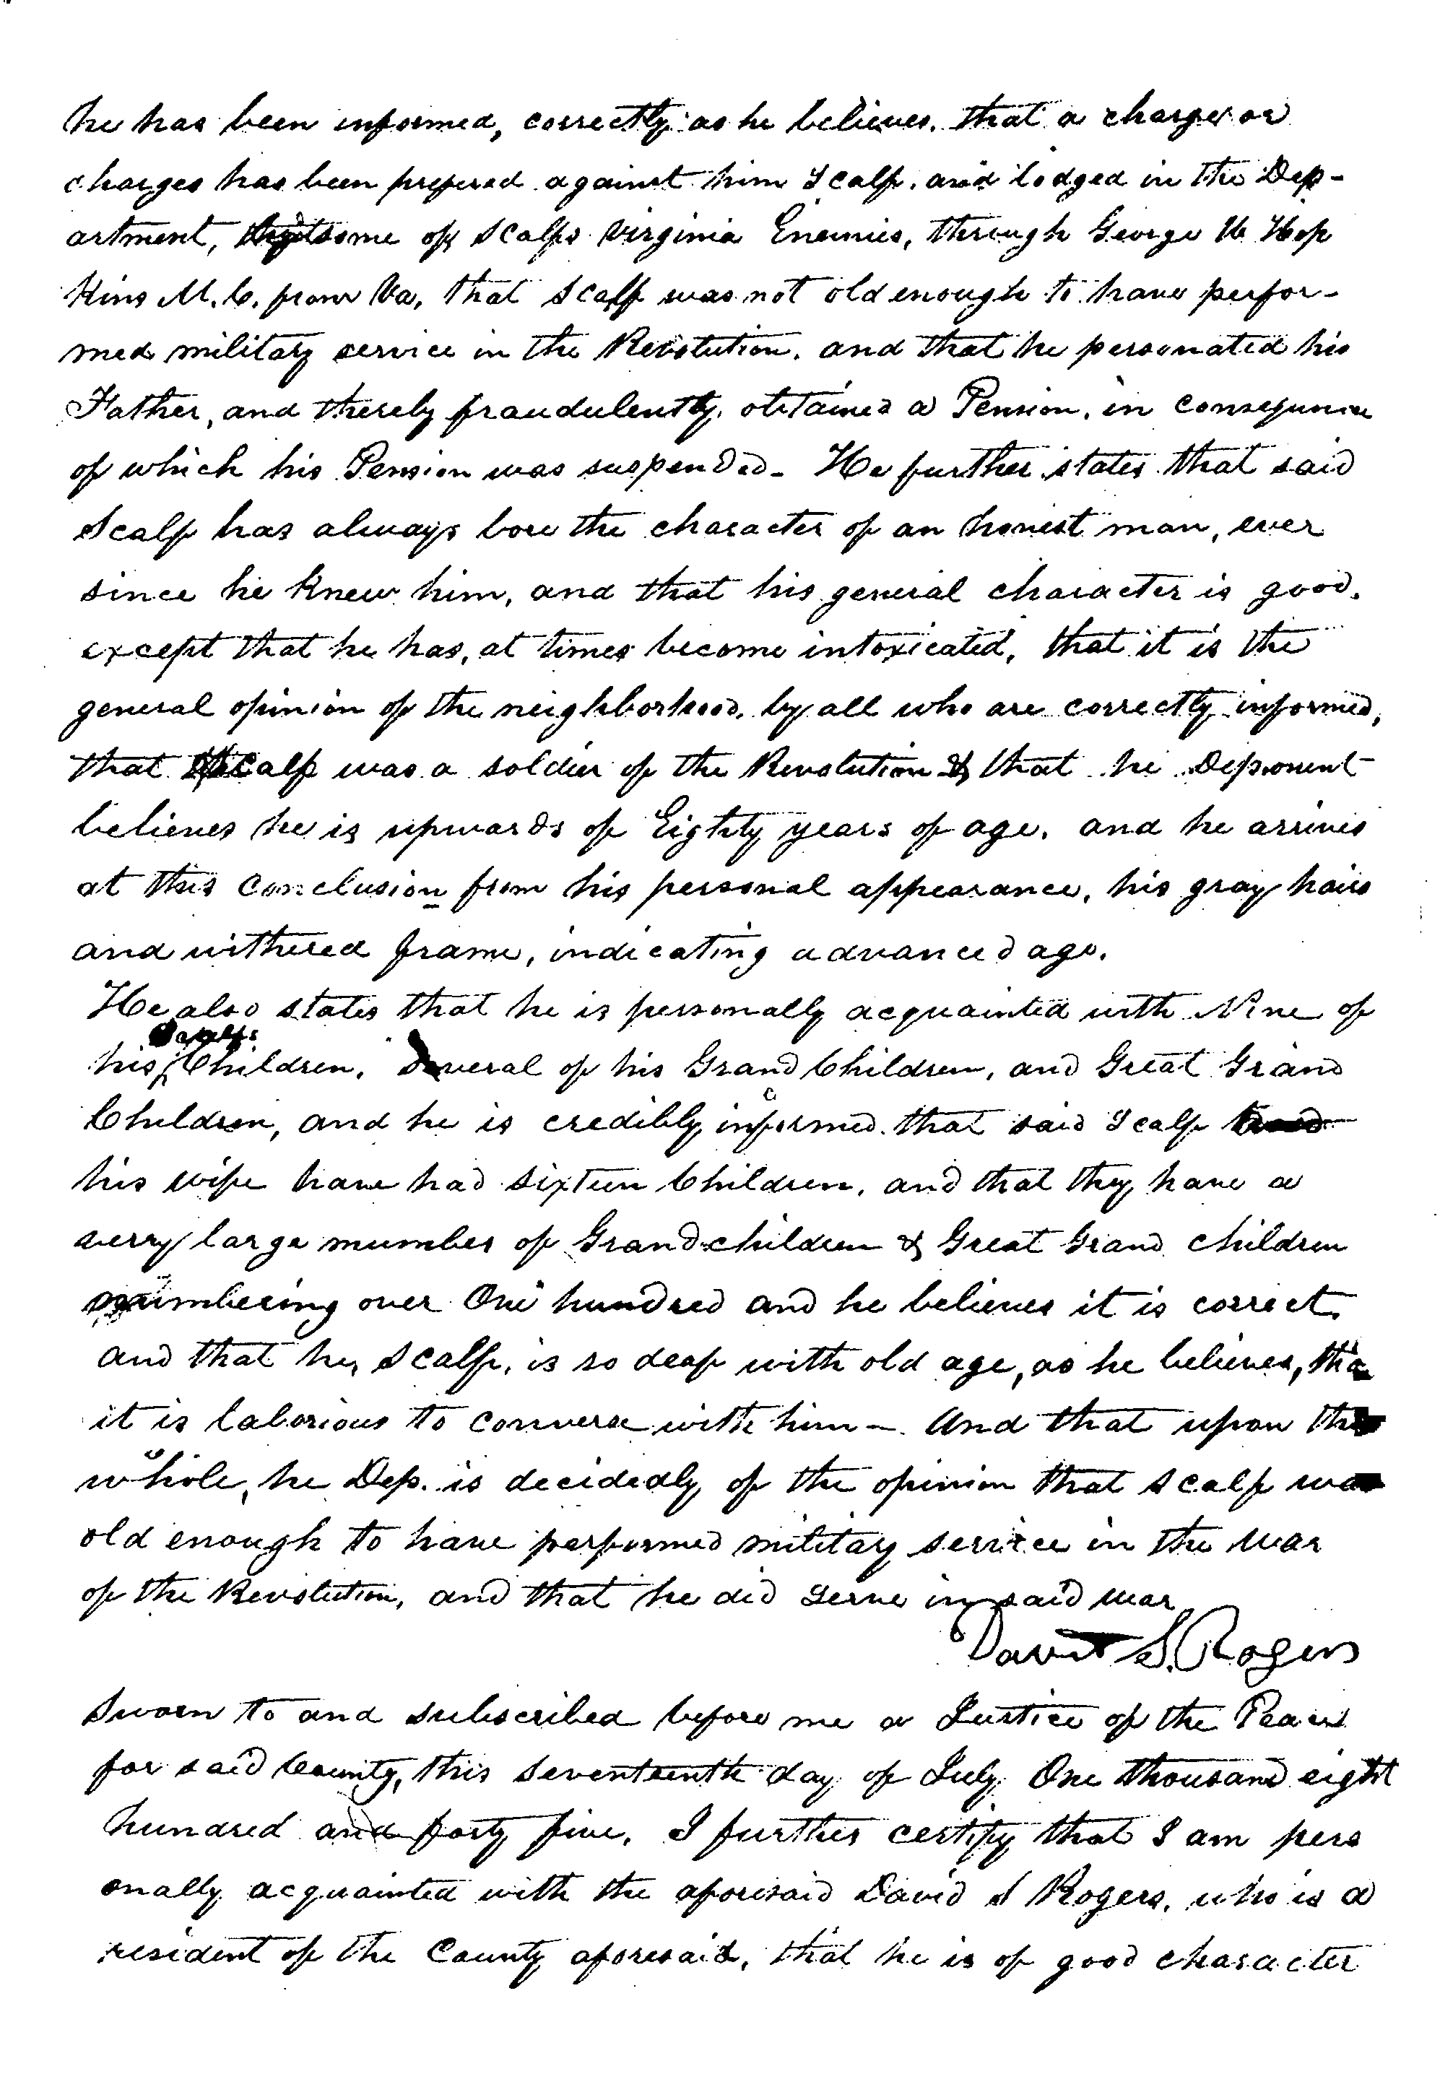 he has been informed, correctly as he believes, that a charge or
charges has been prefered against him Scalf, and lodged in the Dep-
artment, some of Scalfs Virginia Enemies, through George W Hop
kins M.C. from Va, that Scalf was not old enough to have perfor-
med military service in the Revolution, and that he personated his
Father, and thereby fraudulently obtained a Pension, in consequence
of which his Pension was suspended- He further states that said
Scalf has always bore the character of an honest man, ever
since he knew him, and that his general character is good,
except that he has, at times become intoxicated, that it is the
general opinion of the neighborhood, by all who are correctly informed,
that Scalf was a soldier of the Revolution & that he Deponent
believes he is upwards of Eighty years of age, and he arrives
at this conclusion from his personal appearance, his gray hairs
and withered frame, indicating advanced age.
He also states that he is personally acquainted with Nine of
Scalfs
his Children, Several of his Grand Children, and Great Grand
Children, and he is credibly informed that said Scalf
his wife have had sixteen Children, and that they have a
very large number of Grand children & Great Grand children
numbering over One hundred and he believes it is correct,
and that he, Scalf, is so deaf with old age, as he believes, tha
it is laborious to converse with him- And that upon the
whole, he Dep. is decidedly of the opinion that Scalf was
old enough to have performed military service in the war
of the Revolution, and that he did serve in said war
David S. Rogers
Sworn to and subscribed before me a Justice of the Peace
for said County, this seventeenth day of July One thousand eight
hundred and forty five, I further certify that I am pers
onally acquainted with the aforesaid David S Rogers, who is a
resident of the County aforesaid, that he is of good character